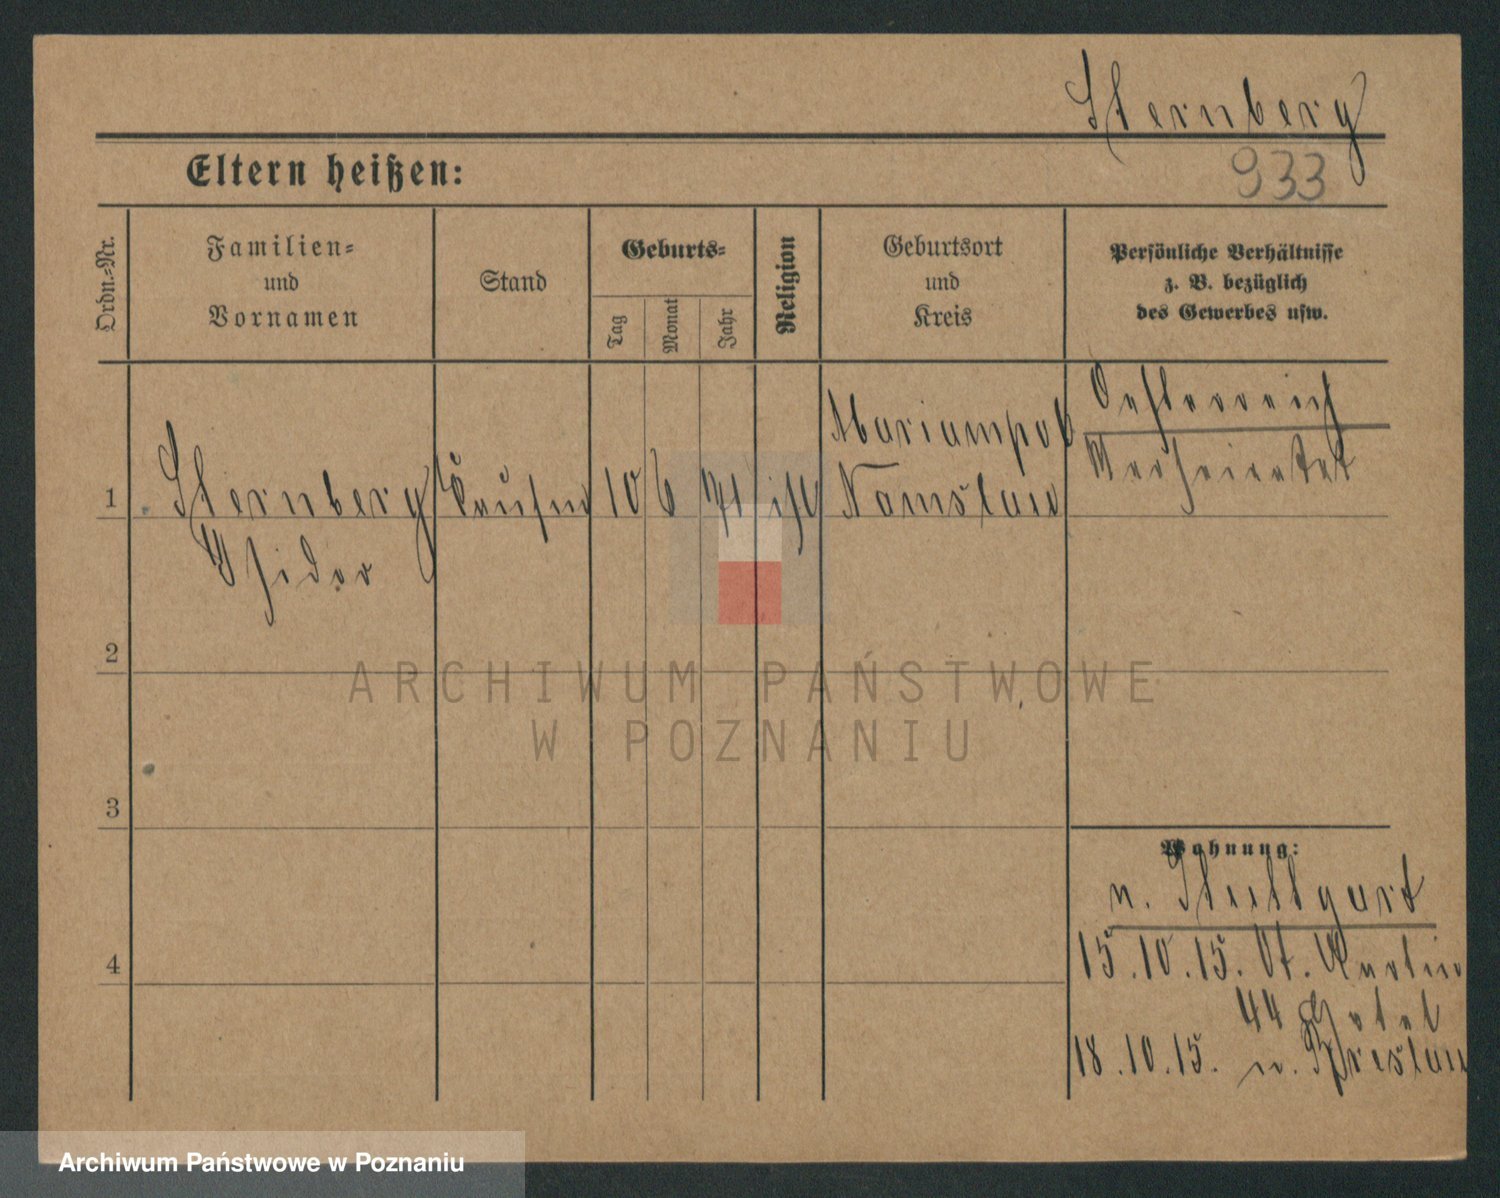 Sternberg
Eltern heißen:
933
Ordn.-Nr.
Familien-
und
Vornamen
Stand
Geburts-
Tag
Monat
Jahr
Religion
Geburtsort
und
Kreis
Persönliche Verhältnisse
z. B. bezüglich
des Gewerbes usw.
Oesterreich
Verheiratet
1
Sternberg
Isidor
Kaufm
10
6
71
isr
Mariampol
Namslau
2
3
4
Wohnung:
n. Stuttgart
15.10.15. St. Martin
44 Hotel
18.10.15. n. Breslau
ARCHIWUM PAŃSTWOWE
W POZNANIU
Archiwum Państwowe w Poznaniu